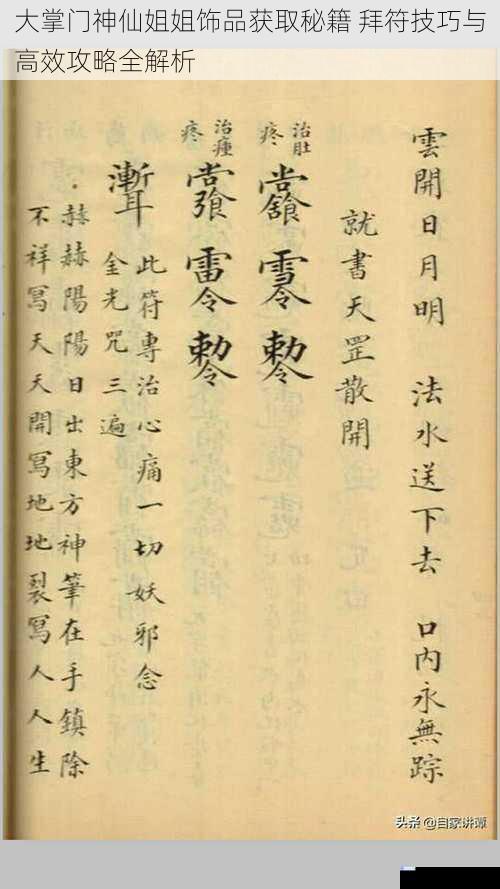 大掌门神仙姐姐饰品获取秘籍 拜符技巧与
高效攻略全解析
雲開日月明 法水送下去 口内永無踪
就書天罡散開
治肚
疼
治瘇
疼
雷令
此符專治心痛一切妖邪念
金光咒三遍
赫赫陽陽日出東方神筆在手鎮除
不祥冩天天開冩地地裂冩人人生
头条 @自家讲谭